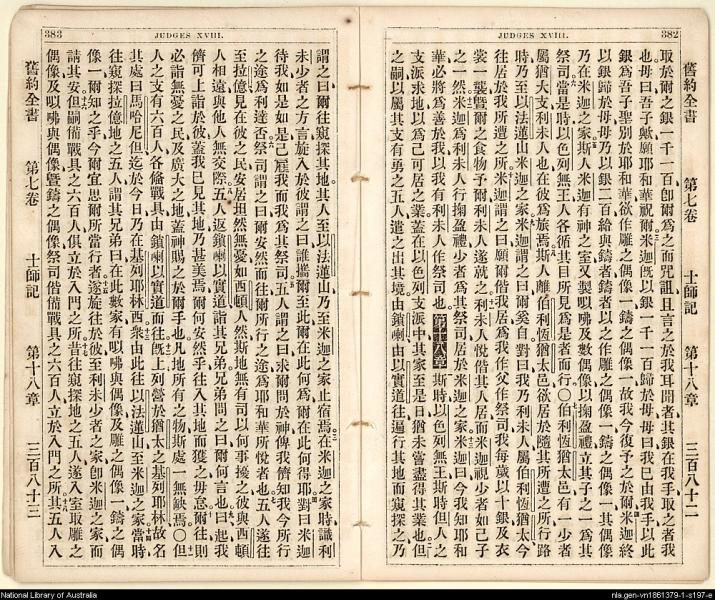 JUDGES XVIII. 382
舊約全書 第七卷 士師記 第十八章 三百八十二
取於爾之銀一千一百卽爾爲之而咒詛且言之於我耳聞者其銀在我手取之者我
也母曰吾子歟願耶和華祝爾米迦旣以銀一千一百歸於母母曰我已由我手以此
銀爲吾子聖別於耶和華欲作雕之偶像一鑄之偶像一故我今復予之於爾米迦終
以銀歸於母母乃以銀二百給與鑄者鑄者以之作雕之偶像一鑄之偶像一其偶像
乃在米迦之家斯人米迦有神之室又製
祭司當是時以色列無王人各循其目所見爲是者而行〇伯利恆猶太邑有一少者
屬猶大支利未人也在彼爲旅焉斯人離伯利恆猶太邑欲居於隨其所遭之所行路
時乃至以法蓮山米迦之家米迦謂之曰爾奚自對曰我乃利未人屬伯利恆猶太今
往居於我所遭之所米迦謂之曰願爾偕我居爲我作父作祭司我每歲以十銀及衣
裳一襲曁爾之食物予爾利未人遂就之利未人悅偕其人居而米迦視少者如己子
之一然米迦爲利未人行掬盈禮少者爲其祭司居於米迦之家米迦曰今我知耶和
華必將爲善於我以我有利未人作祭司也第十八章斯時以色列無王斯時但人之
支派求地以爲己可居之業蓋在以色列支派中其家至是日猶未嘗盡得其業也但
之嗣以屬其支有勇之五人遣之出其境由鎖喇由以實道往遍行其地而窺探之乃
383 JUDGES XVIII.
謂之曰爾往窺探其地其人至以法蓮山乃至米迦之家止宿焉在米迦之家時識利
未少者之方言旋入於彼謂之曰誰攜爾至此爾在此何爲爾在此何得耶對曰米迦
待我如是如是己雇我而我爲其祭司五人謂之曰求爾問於神俾我儕知我今所行
之途爲利達否祭司謂之曰爾安然而往爾所行之途爲耶和華所悅者也五人遂往
至拉億見在彼之民安居坦然無憂如西頓人然斯地無有司以何事擾之彼與西頓
人相遠與他人無交際五人返鎖喇以實道詣其兄弟兄弟問之曰爾何言也曰起我
儕可上詣於彼蓋我已見其地乃甚美焉爾何安然乎往入其地而獲之毋怠爾往則
必詣無憂之民及廣大之地蓋神賜之於爾手也凡地所有之物斯處一無缺焉〇但
人之支有六百人各備戰具由鎖喇以實道而往旣上列營於猶太之基列耶林故名
其處曰馬哈尼但迄於今日乃在基列耶林西衆由此往以法蓮山至米迦之家當時
往窺探拉億地之五人謂其兄弟曰在此數家有
像一爾知之乎今爾宜思爾所當行者遂旋往於彼至利未少者之家卽米迦之家而
請其安但嗣備戰具之六百人俱立於入門之所昔往窺探地之五人遂入室取雕之
偶像一鑄之偶像祭司偕備戰具之六百人立於入門之所其五人入
舊約全書 第七卷 士師記 第十八章 三百八十三
National Library of Australia
nla.gen-vn1861379-1-s197-e